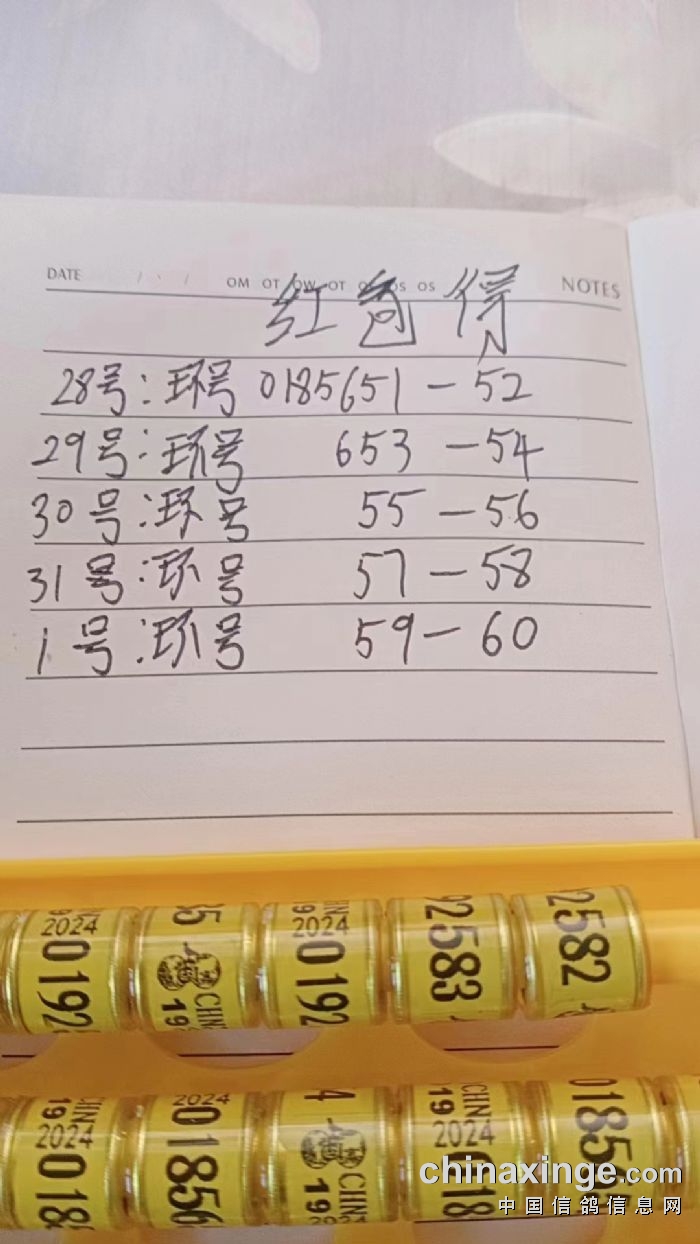 DATE / / / OM OT OW OT OF OS OS NOTES
红包得
28号:环号 0185651 - 52
29号:环号 653 - 54
30号:环号 55 - 56
31号:环号 57 - 58
1号:环号 59 - 60
2024 2024
0192 0192 92583 92582
CHIN
19
2024 2024
CHIN CHIN
19 19 19
2024
018 0185 4 018 0185
chinaxinge.com
中国信鸽信息网